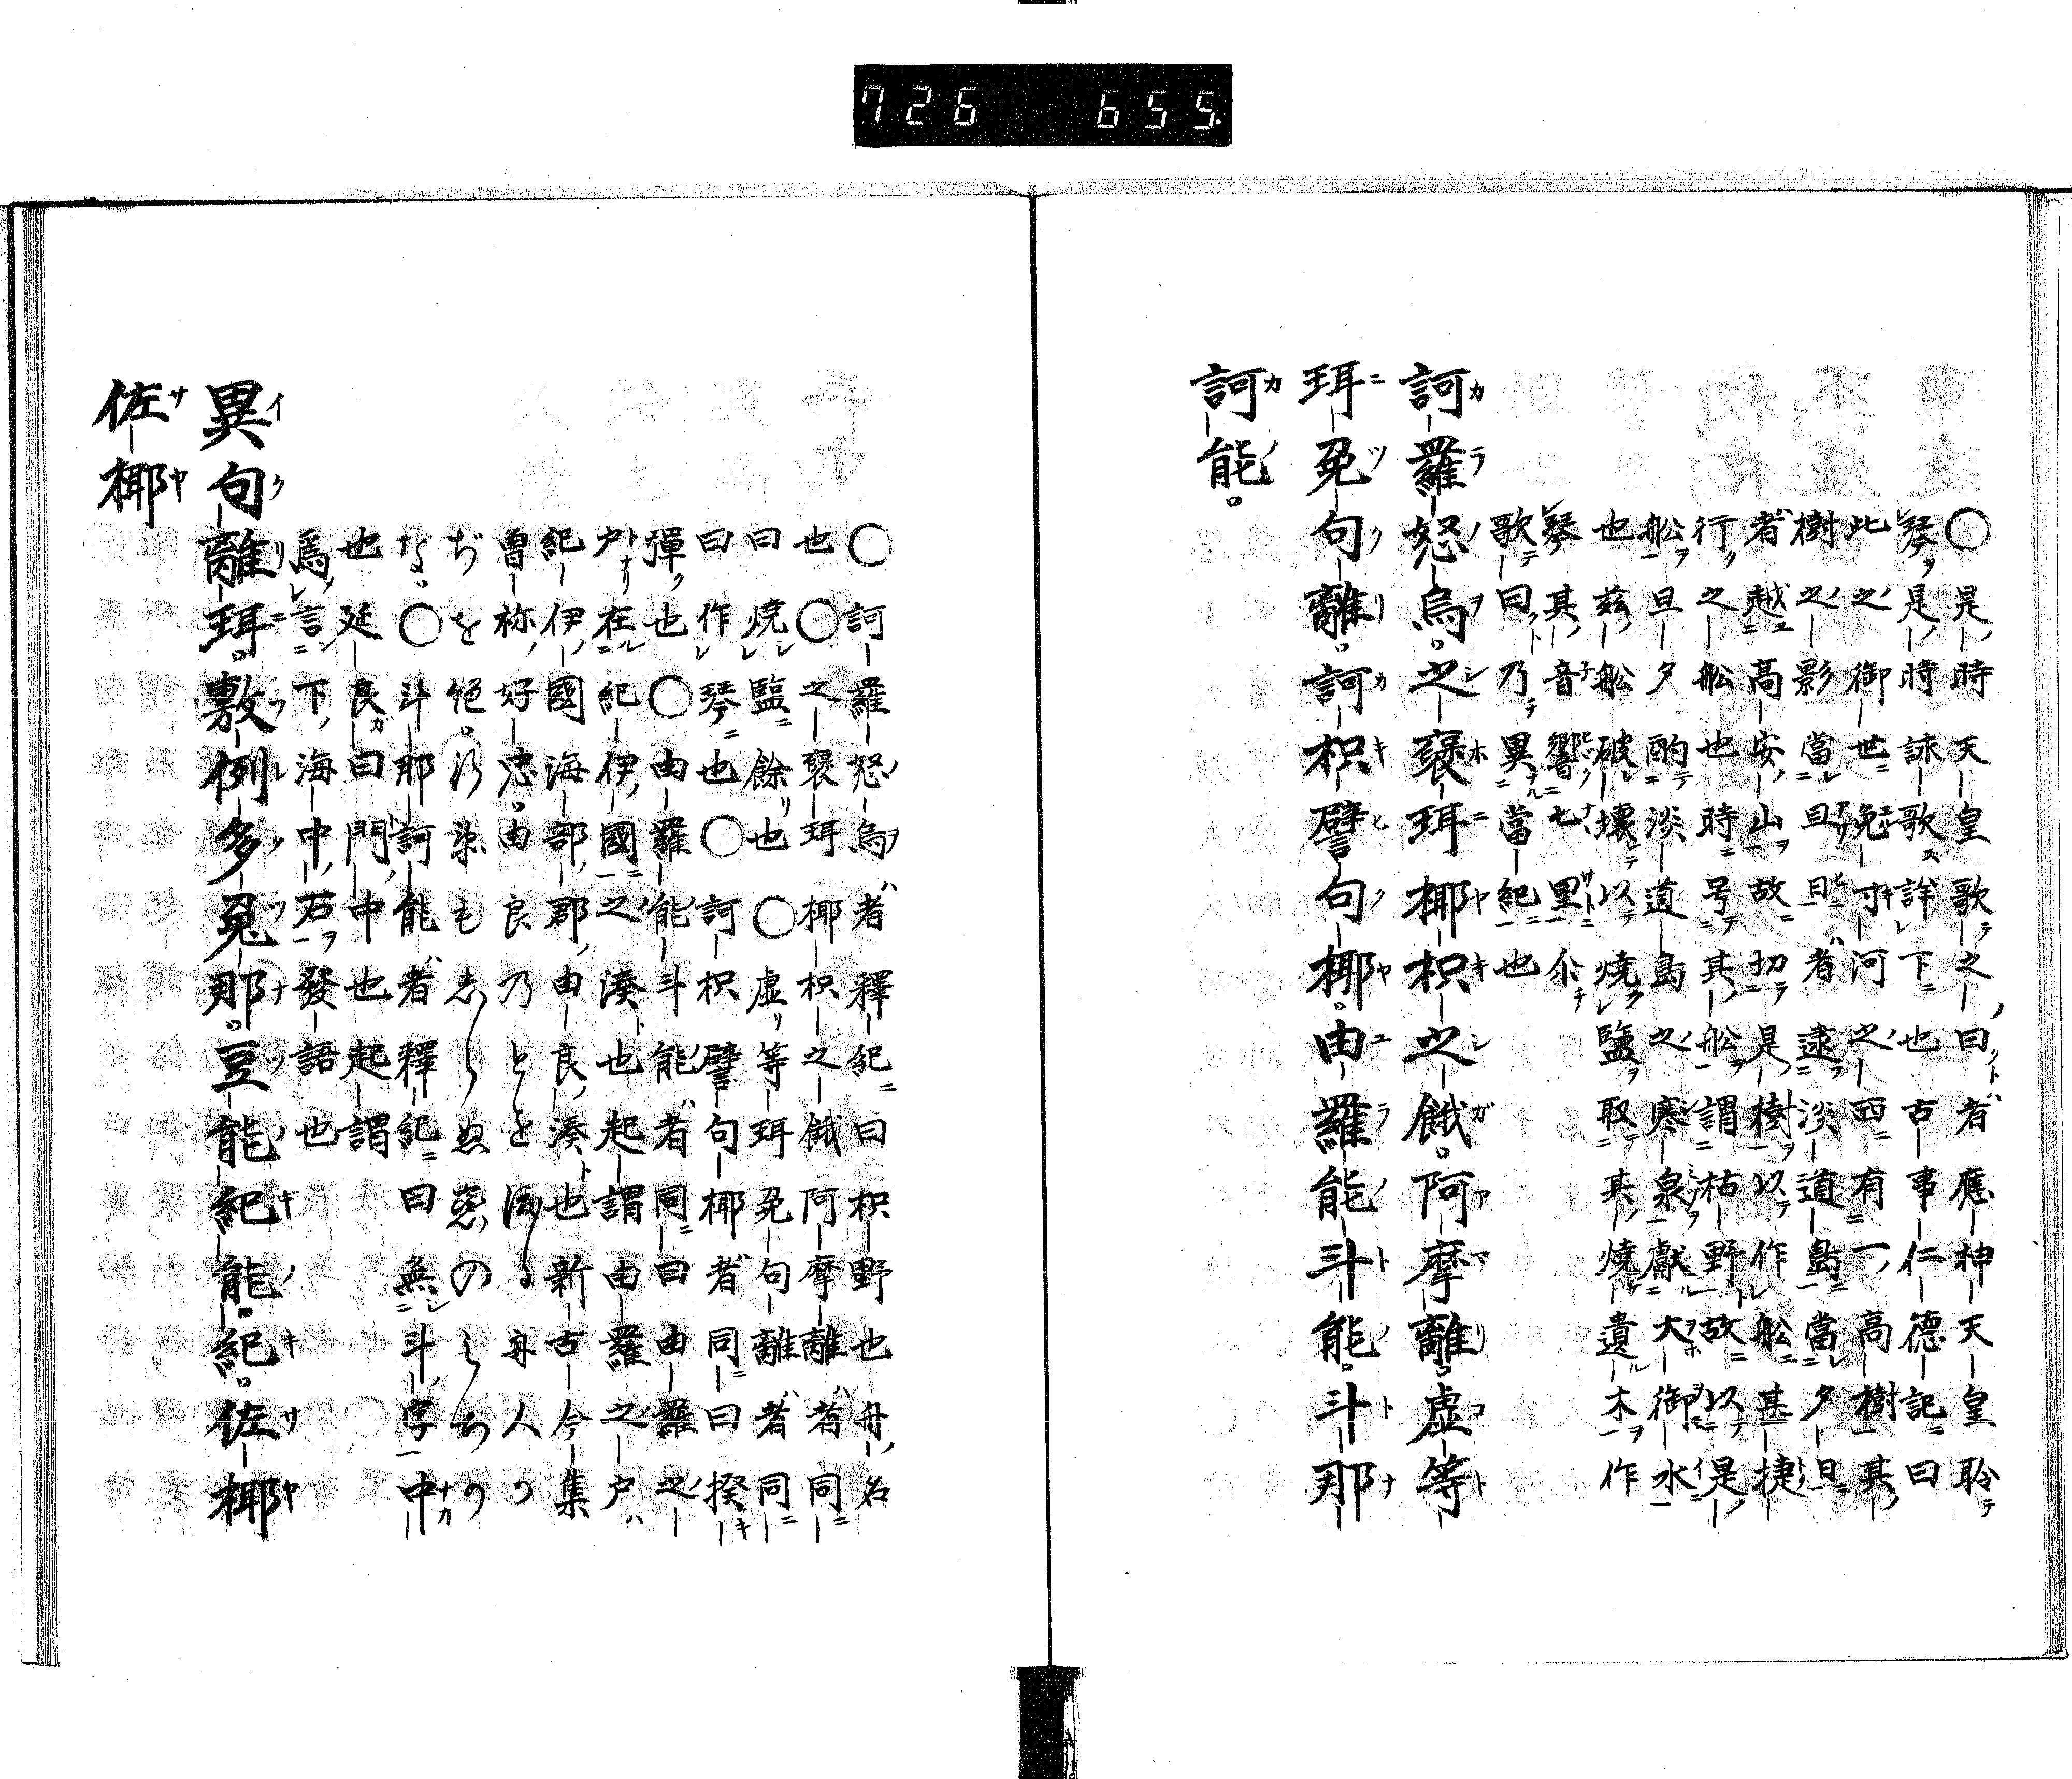 726 655
○是時天皇歌之曰者應神天皇聆
琴是時詠歌詳下也古事仁德記曰
此之御世免寸河之西有一高樹其
樹之影當旦日者逮淡道嶋當夕日
者越高安山故切是樹以作舩甚捷
行之舩也時号其舩謂枯野故以是
舩旦夕酌淡道嶋之寒泉獻大御水
也茲舩破壊以燒鹽取其燒遺木作
琴其音響七里尒
歌曰乃異當紀也
訶羅怒烏之褒珥椰枳之餓阿摩離虛等
珥免句離訶枳譬句椰由羅能斗能斗那
訶能
○訶羅怒烏者釋紀曰枳野也舟名
也○之褒珥椰枳之餓阿摩離者同
曰燒鹽餘也○虛等珥免句離者同
曰作琴也○訶枳譬句椰者同曰揆
彈也○由羅能斗能者同曰由羅之
戸在紀伊國之湊也起謂由羅之戸
紀伊國海部郡由良湊也新古今集
曽祢好忠由良乃とを
ぢを絶
○斗那訶能者釋紀曰無斗字中
也延良曰門中也起謂
爲言下海中石發語也
異句離珥敷例多菟那豆能紀能紀佐椰
佐椰